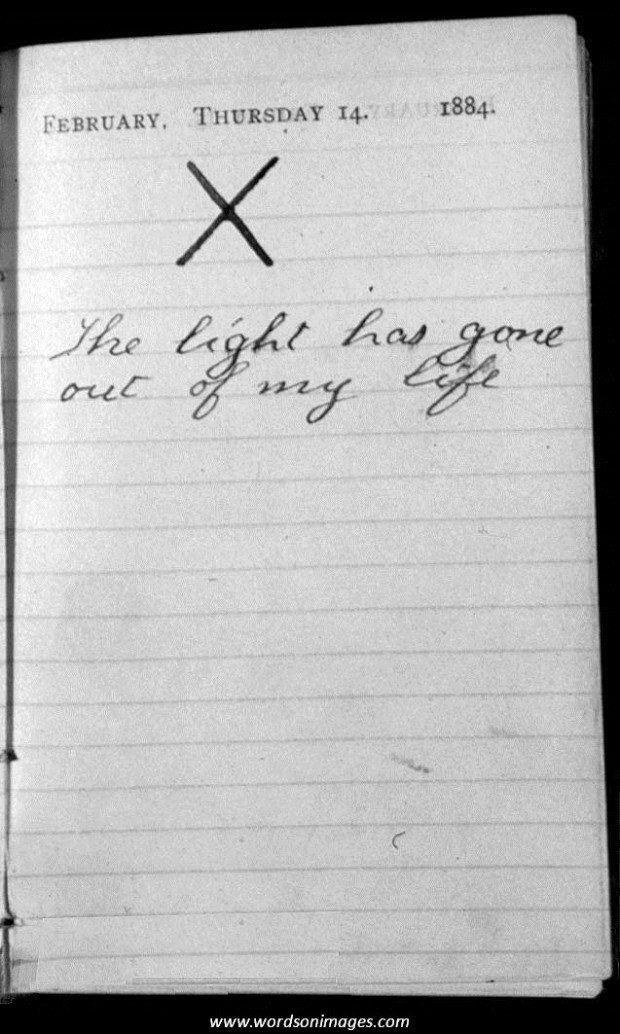 FEBRUARY, THURSDAY 14. 1884.
X
The light has gone
out of my life
www.wordsonimages.com